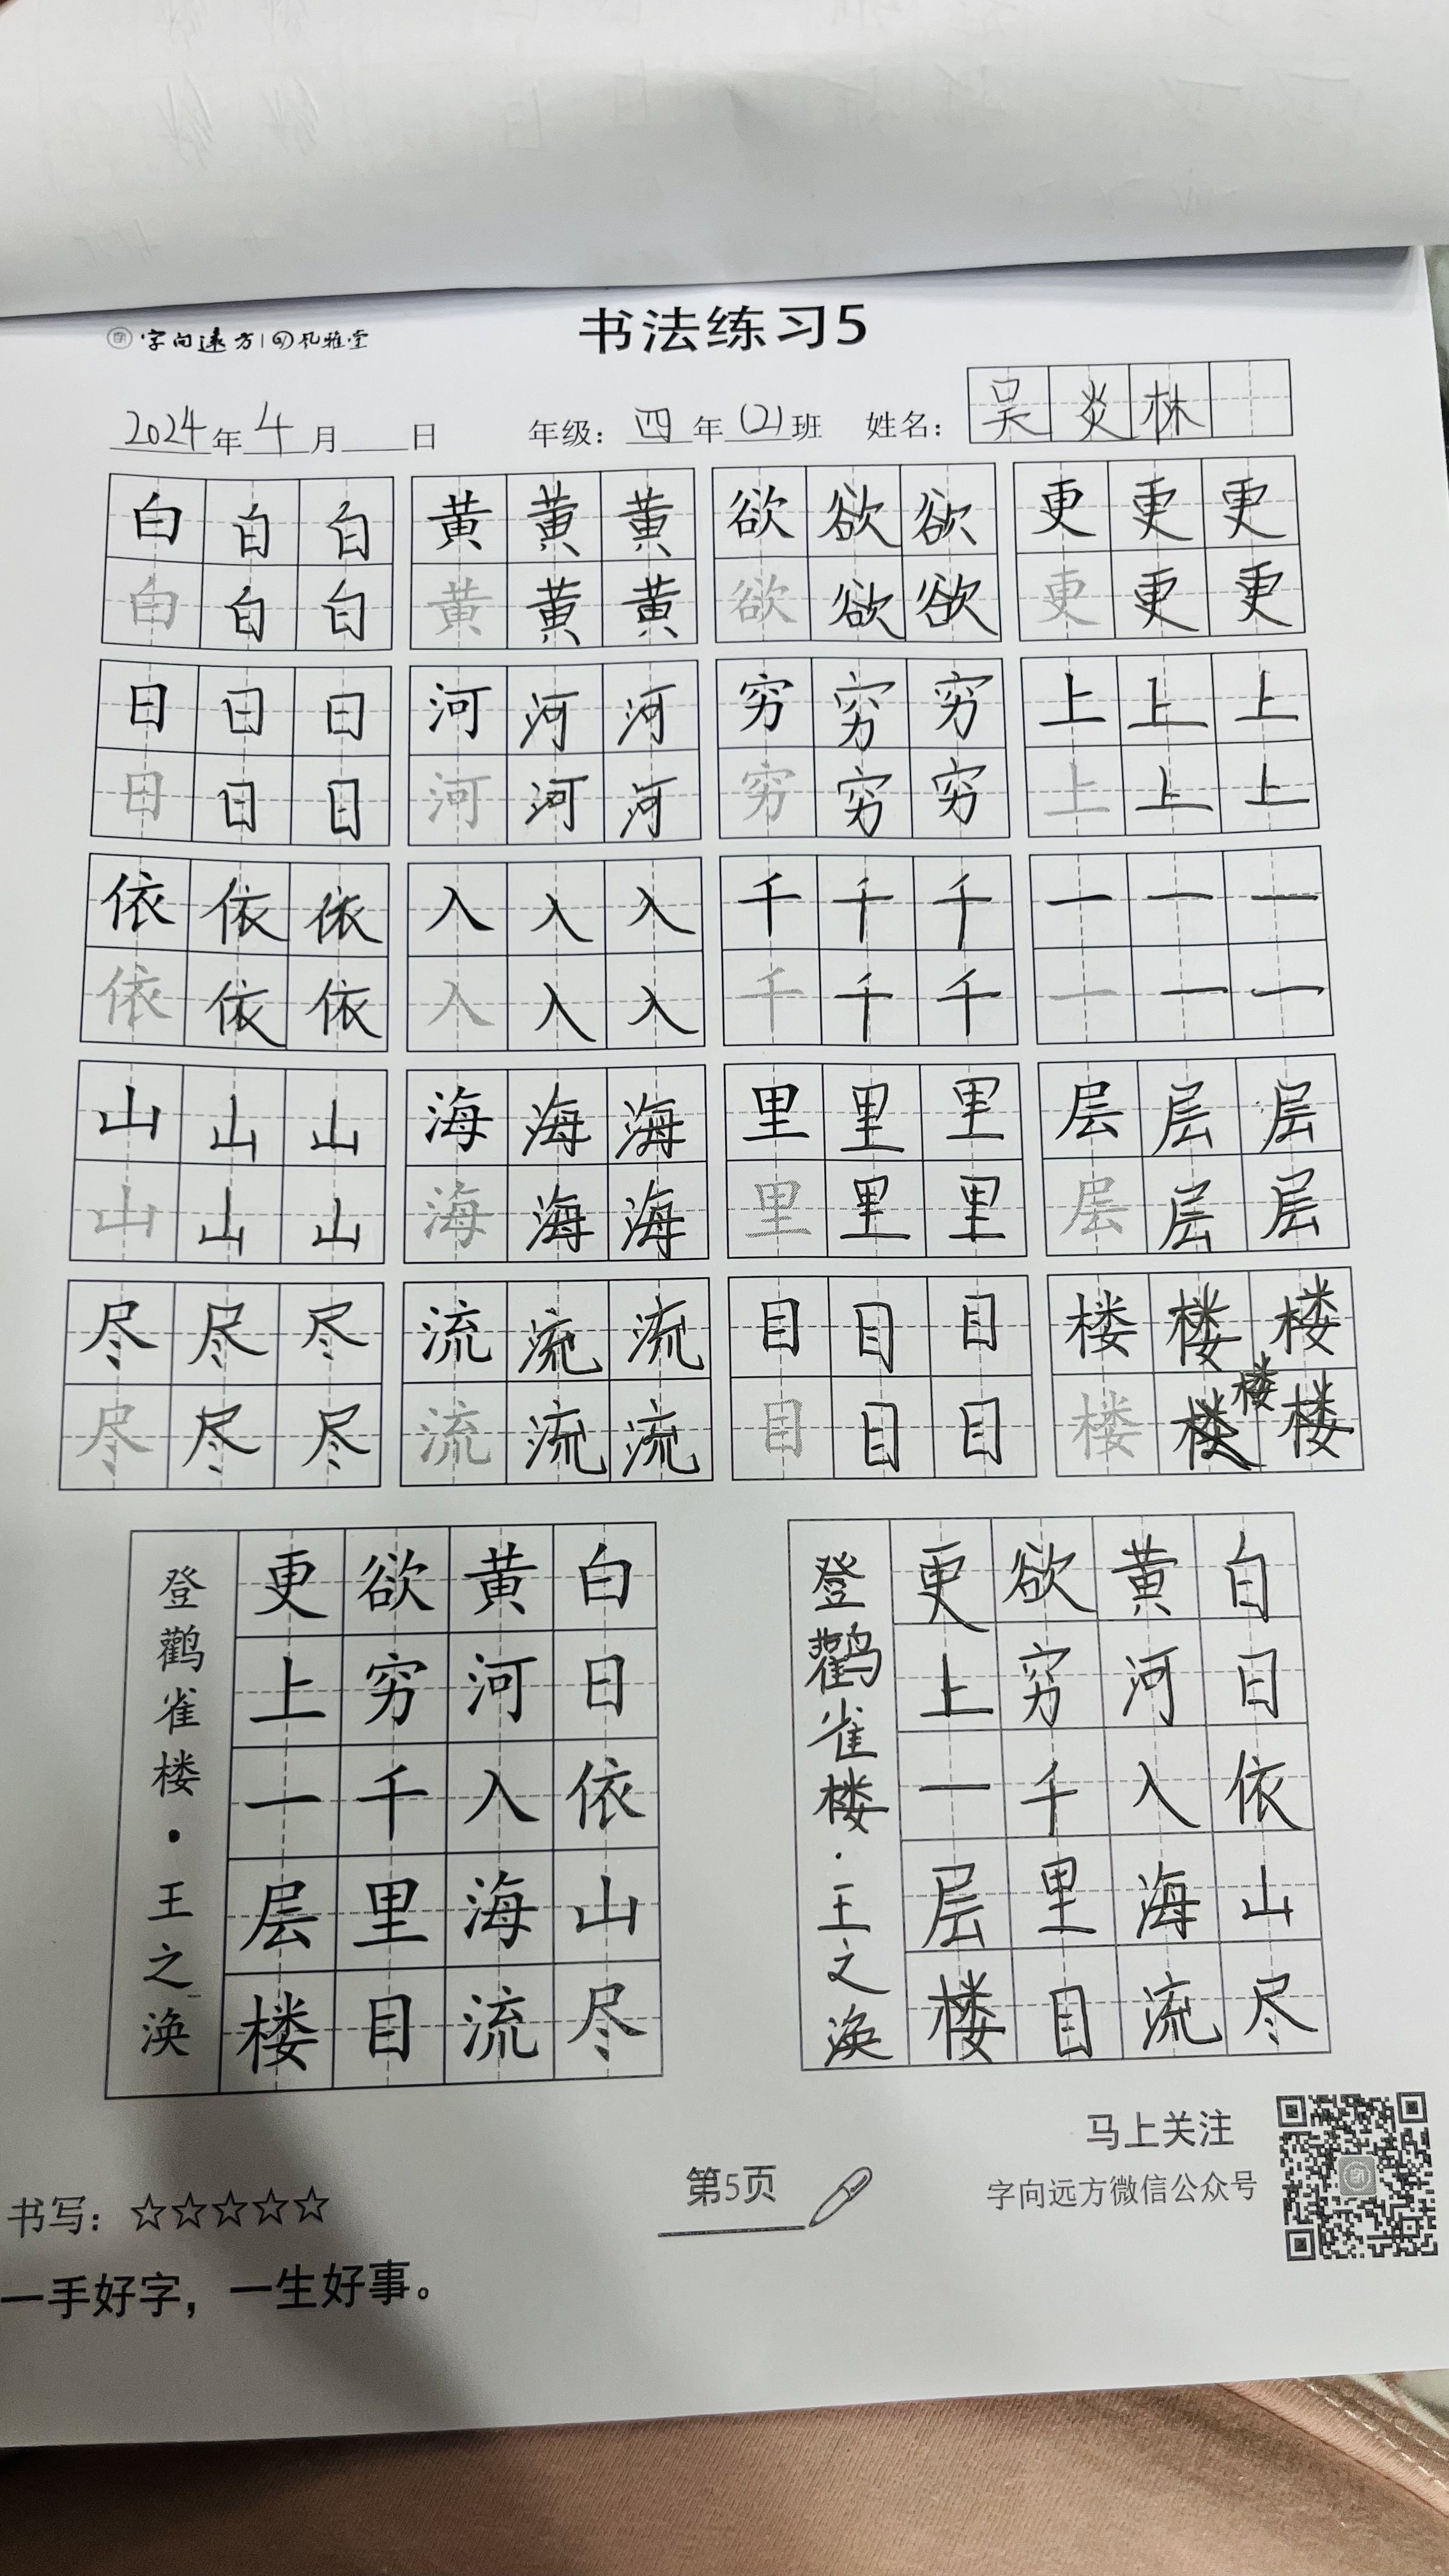 字向远方 风雅堂
书法练习5
2024年4月 日 年级：四年(2)班 姓名：吴炎林
白白白 黄黄黄 欲欲欲 更更更
白白白 黄黄黄 欲欲欲 更更更
日日日 河河河 穷穷穷 上上上
日日日 河河河 穷穷穷 上上上
依依依 入入入 千千千 一一一
依依依 入入入 千千千 一一一
山山山 海海海 里里里 层层层
山山山 海海海 里里里 层层层
尽尽尽 流流流 目目目 楼楼楼
楼
尽尽尽 流流流 目目目 楼楼楼
白日依山尽
黄河入海流
欲穷千里目
更上一层楼
登鹳雀楼·王之涣
白日依山尽
黄河入海流
欲穷千里目
更上一层楼
登鹳雀楼·王之涣
马上关注
字向远方微信公众号
第5页
书写：☆☆☆☆☆
一手好字，一生好事。